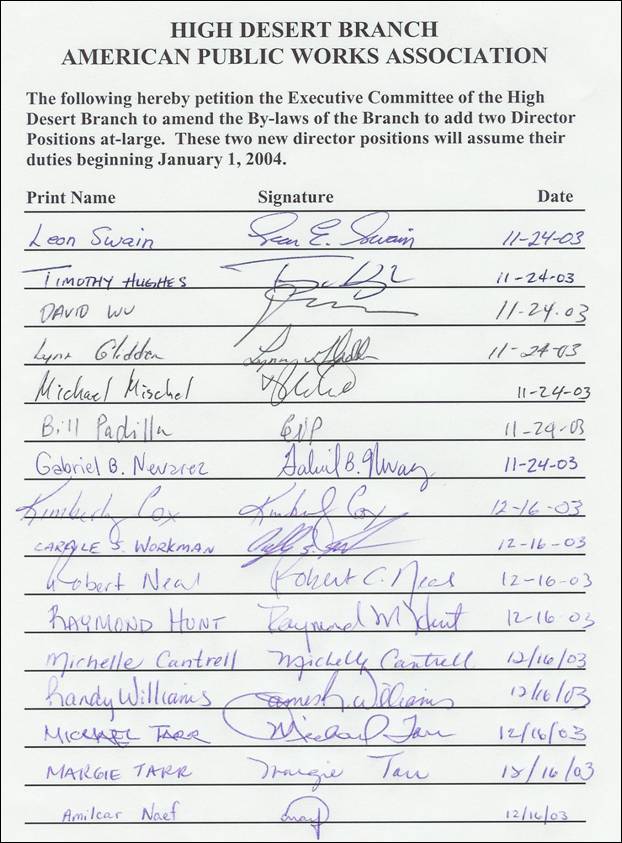 HIGH DESERT BRANCH
AMERICAN PUBLIC WORKS ASSOCIATION
The following hereby petition the Executive Committee of the High
Desert Branch to amend the By-laws of the Branch to add two Director
Positions at-large. These two new director positions will assume their
duties beginning January 1, 2004.
Print Name Signature Date
Leon Swain Sean E. Swain 11-24-03
TIMOTHY HUGHES 11-24-03
DAVID WU 11-24-03
Lynn Glidden Lynn Glidden 11-24-03
Michael Mischel 11-24-03
Bill Padilla 11-24-03
Gabriel B. Nevarez Gabriel B. 11-24-03
Kimberly Cox Kimberly Cox 12-16-03
CARLYLE S. WORKMAN 12-16-03
Robert Neal Robert C. Neal 12-16-03
RAYMOND HUNT Raymond M Hunt 12-16-03
Michelle Cantrell Michelle Cantrell 12/16/03
Randy Williams James R. Williams 12/16/03
MICHAEL TARR Michael Tarr 12/16/03
MARGIE TARR Margie Tarr 12/16/03
Amilcar Naef 12/16/03